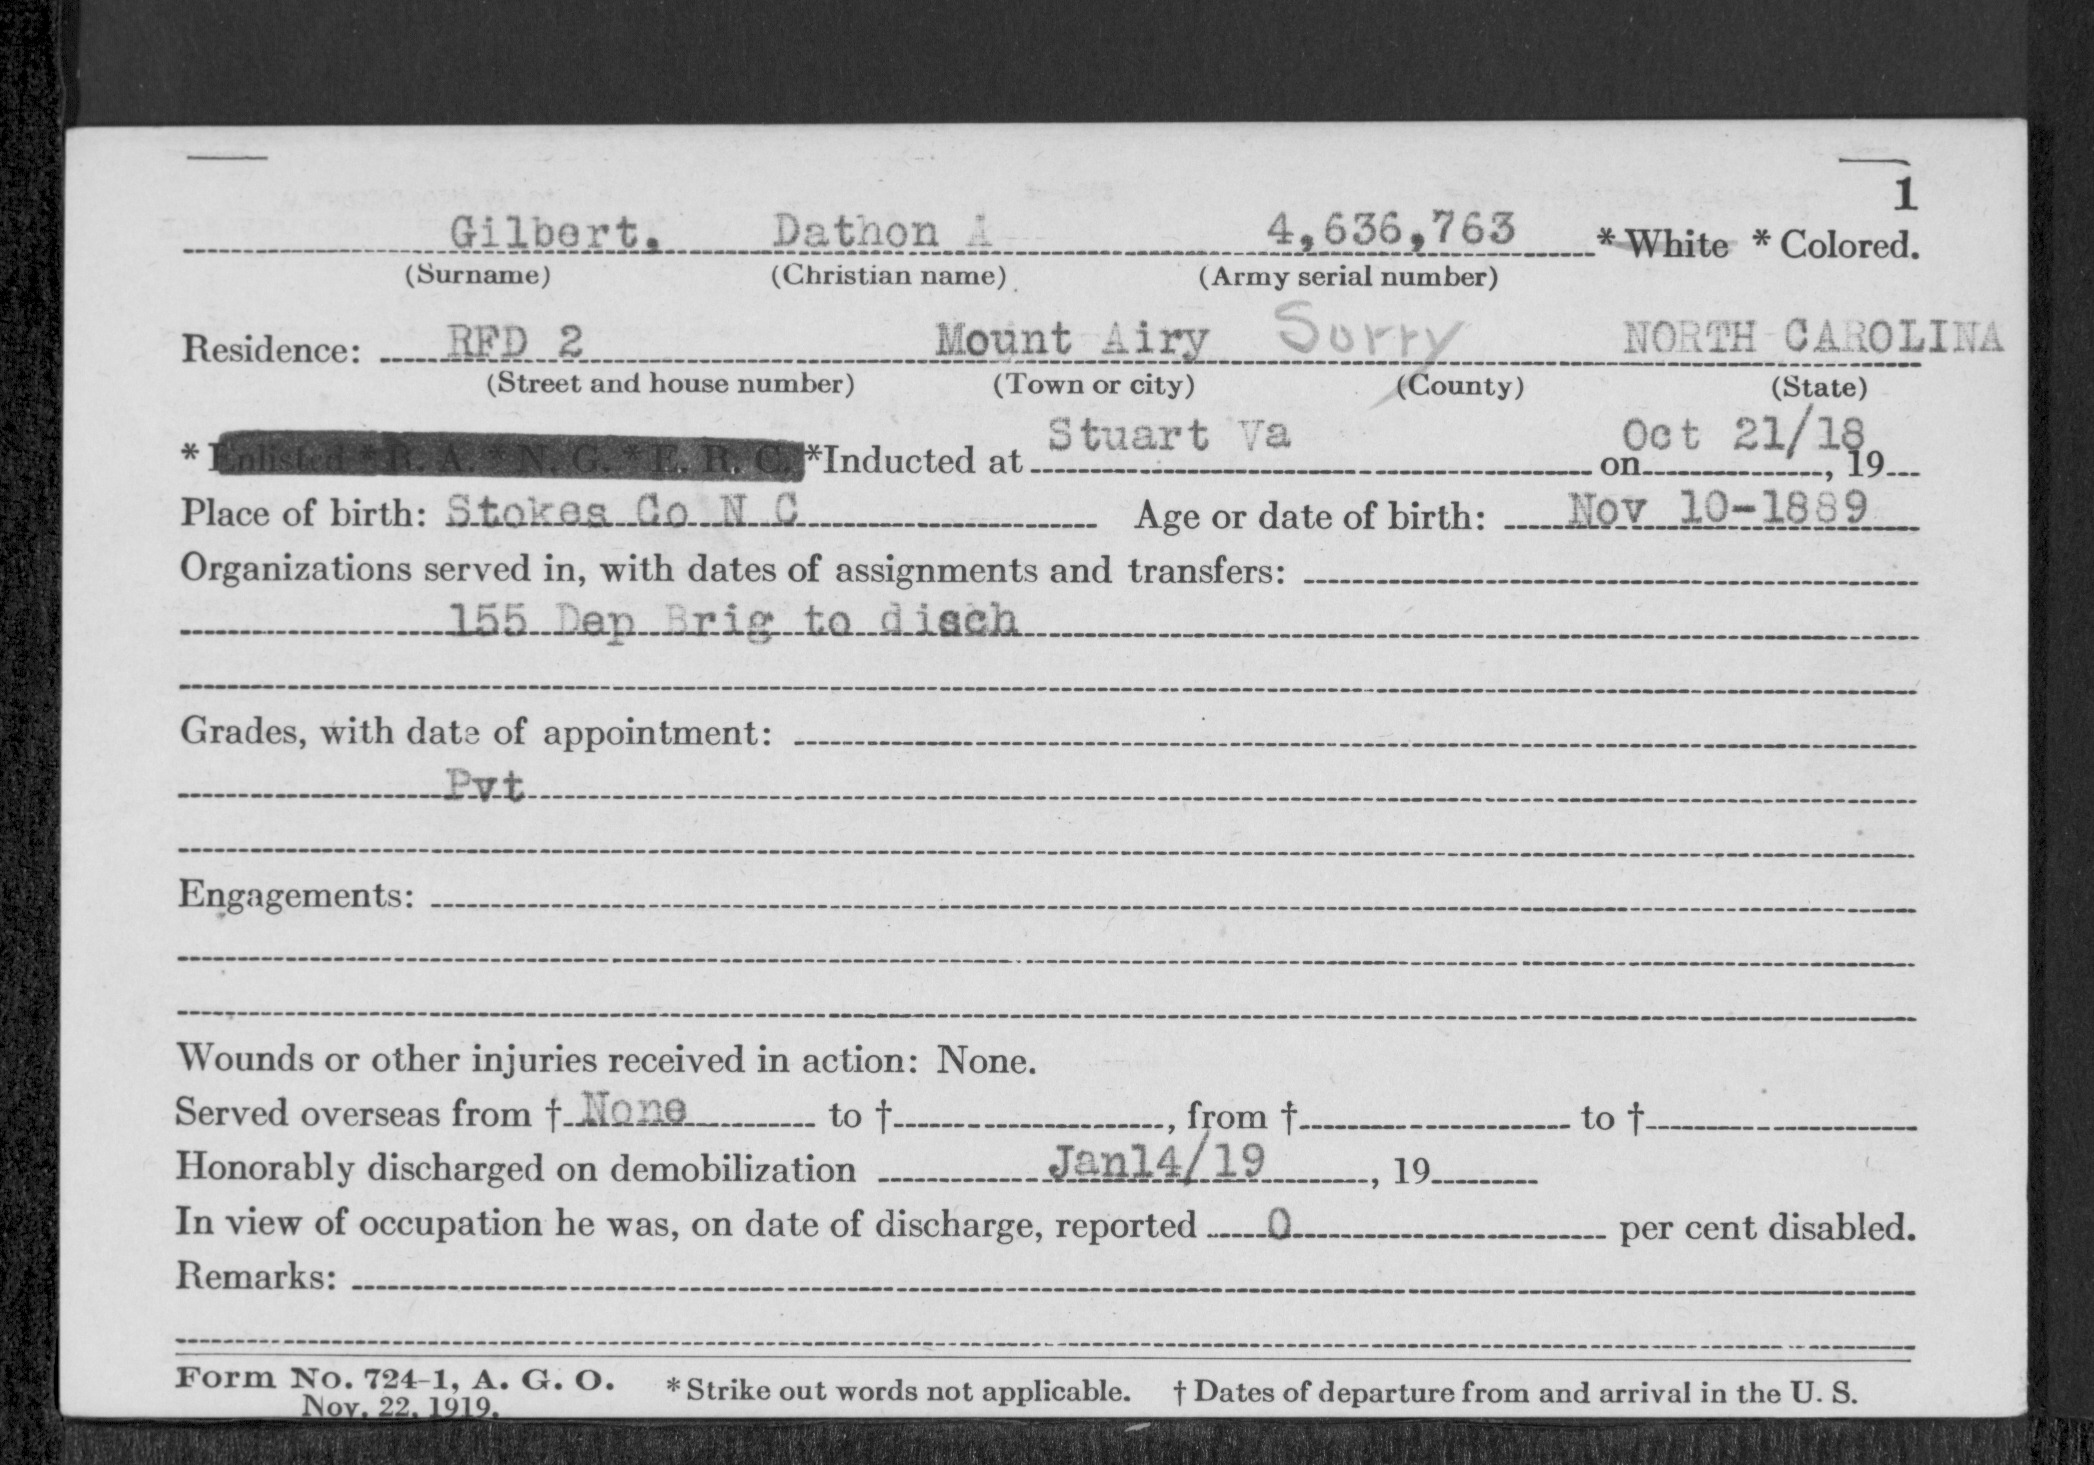 1
Gilbert, Dathon A 4,636,763 * White * Colored.
(Surname) (Christian name) (Army serial number)
Residence: RFD 2 Mount Airy Surry NORTH CAROLINA
(Street and house number) (Town or city) (County) (State)
* Enlisted * R. A. * N. G. * E. R. C. *Inducted at Stuart Va on Oct 21/18, 19
Place of birth: Stokes Co N C Age or date of birth: Nov 10-1889
Organizations served in, with dates of assignments and transfers:
155 Dep Brig to disch
Grades, with date of appointment:
Pvt
Engagements:
Wounds or other injuries received in action: None.
Served overseas from † None to †, from † to †
Honorably discharged on demobilization Jan14/19, 19
In view of occupation he was, on date of discharge, reported 0 per cent disabled.
Remarks:
Form No. 724-1, A. G. O. * Strike out words not applicable. † Dates of departure from and arrival in the U. S.
Nov. 22, 1919.